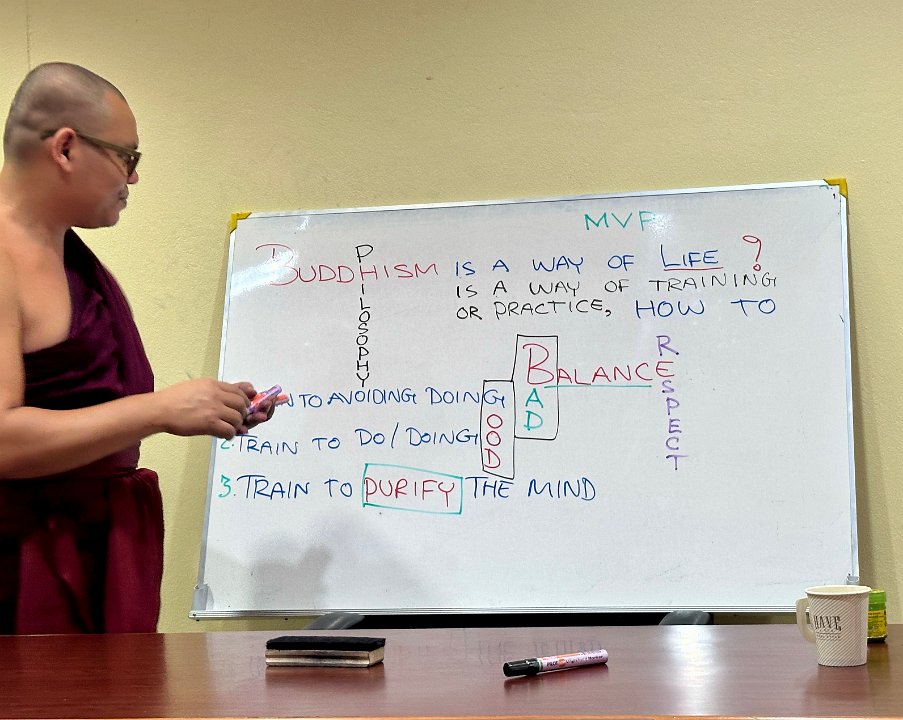 MVP
BUDDHISM IS A WAY OF LIFE ?
PHILOSOPHY
IS A WAY OF TRAINING
OR PRACTICE, HOW TO
BALANCE
RESPECT
BAD
TO AVOIDING DOING
GOOD
2. TRAIN TO DO / DOING
3. TRAIN TO PURIFY THE MIND
HAVE
PILOT